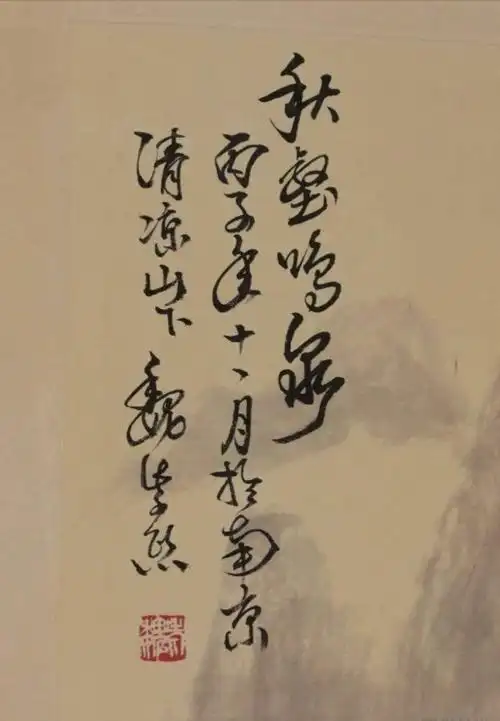 秋壑鸣泉
丙子年十一月於南京
清凉山下 魏紫熙